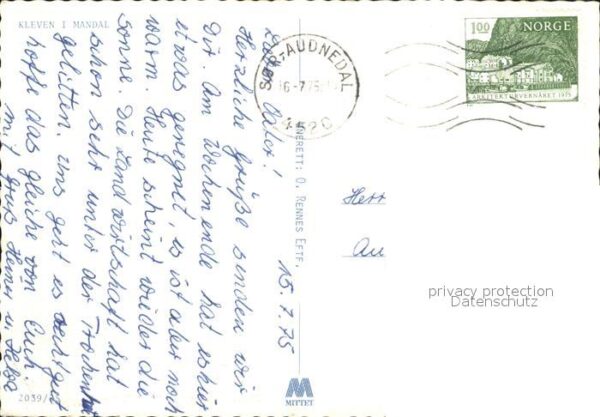 KLEVEN I MANDAL
15.7.75
Herzliche Grüße senden wir
Dir. Am Wochenende hat es hier
etwas geregnet, es ist aber noch
warm. Heute scheint wieder die
Sonne. Die Landwirtschaft hat
schon sehr unter der Trockenheit
gelitten. Uns geht es sehr gut
hoffe das gleiche von Euch.
mit Gruß
ENERETT: O. RENNES EFTF.
MITTET
2039/
SØR-AUDNEDAL
16-7.75
4520
1.00 NORGE
ARKITEKTURVERNÅRET 1975
Herr
An
privacy protection
Datenschutz